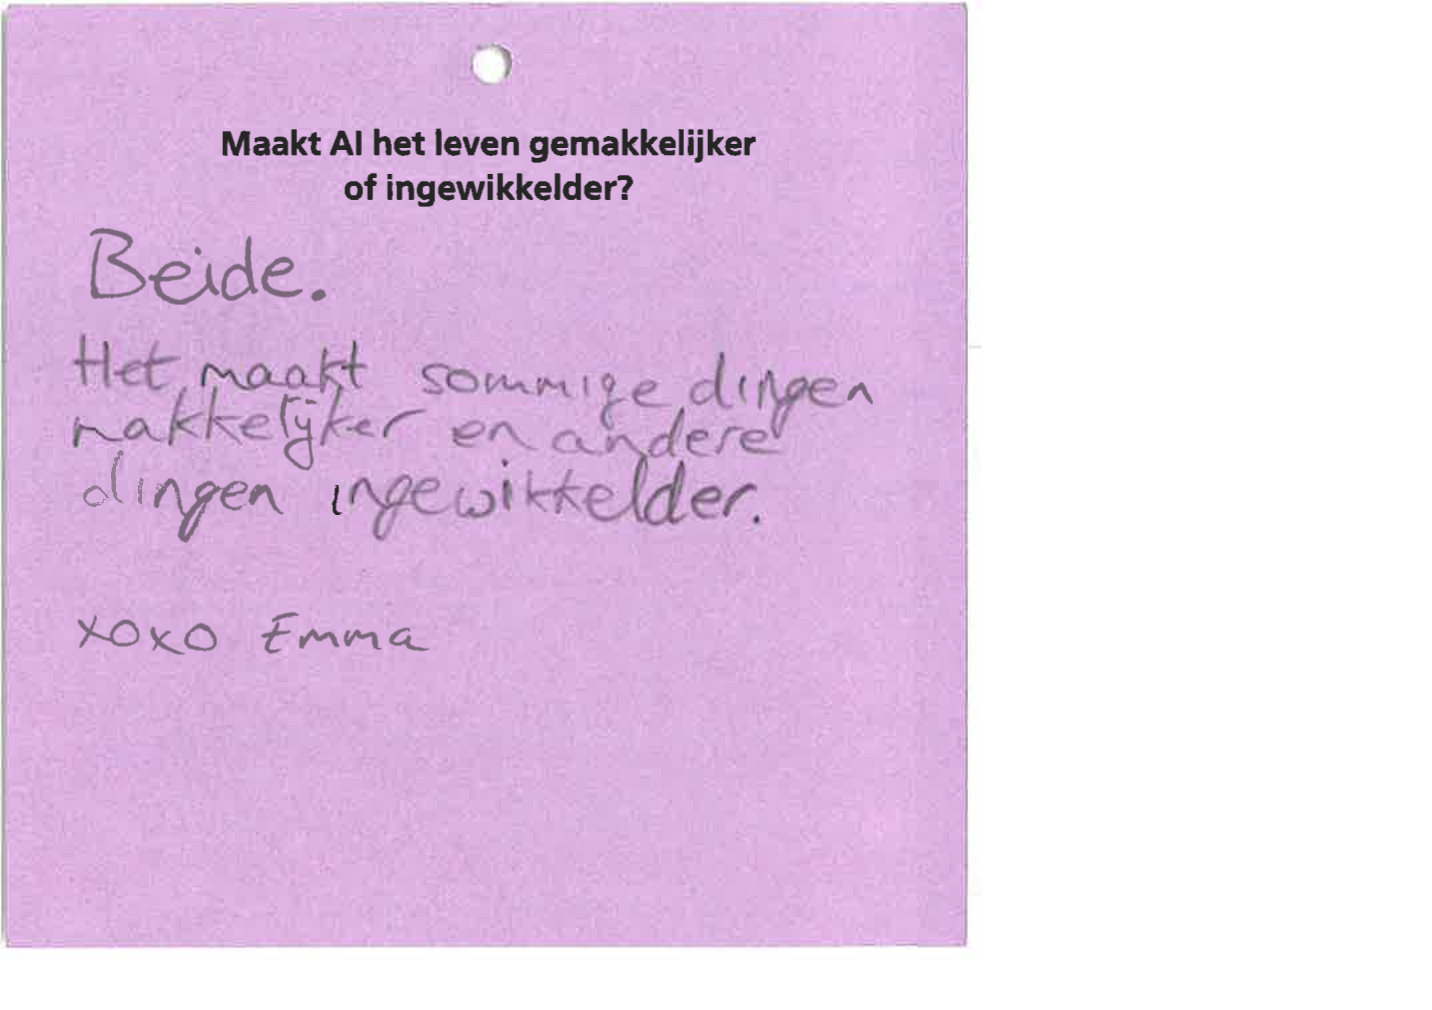 Maakt AI het leven gemakkelijker
of ingewikkelder?
Beide.
Het maakt sommige dingen
makkelijker en andere
dingen ingewikkelder.
xoxo Emma